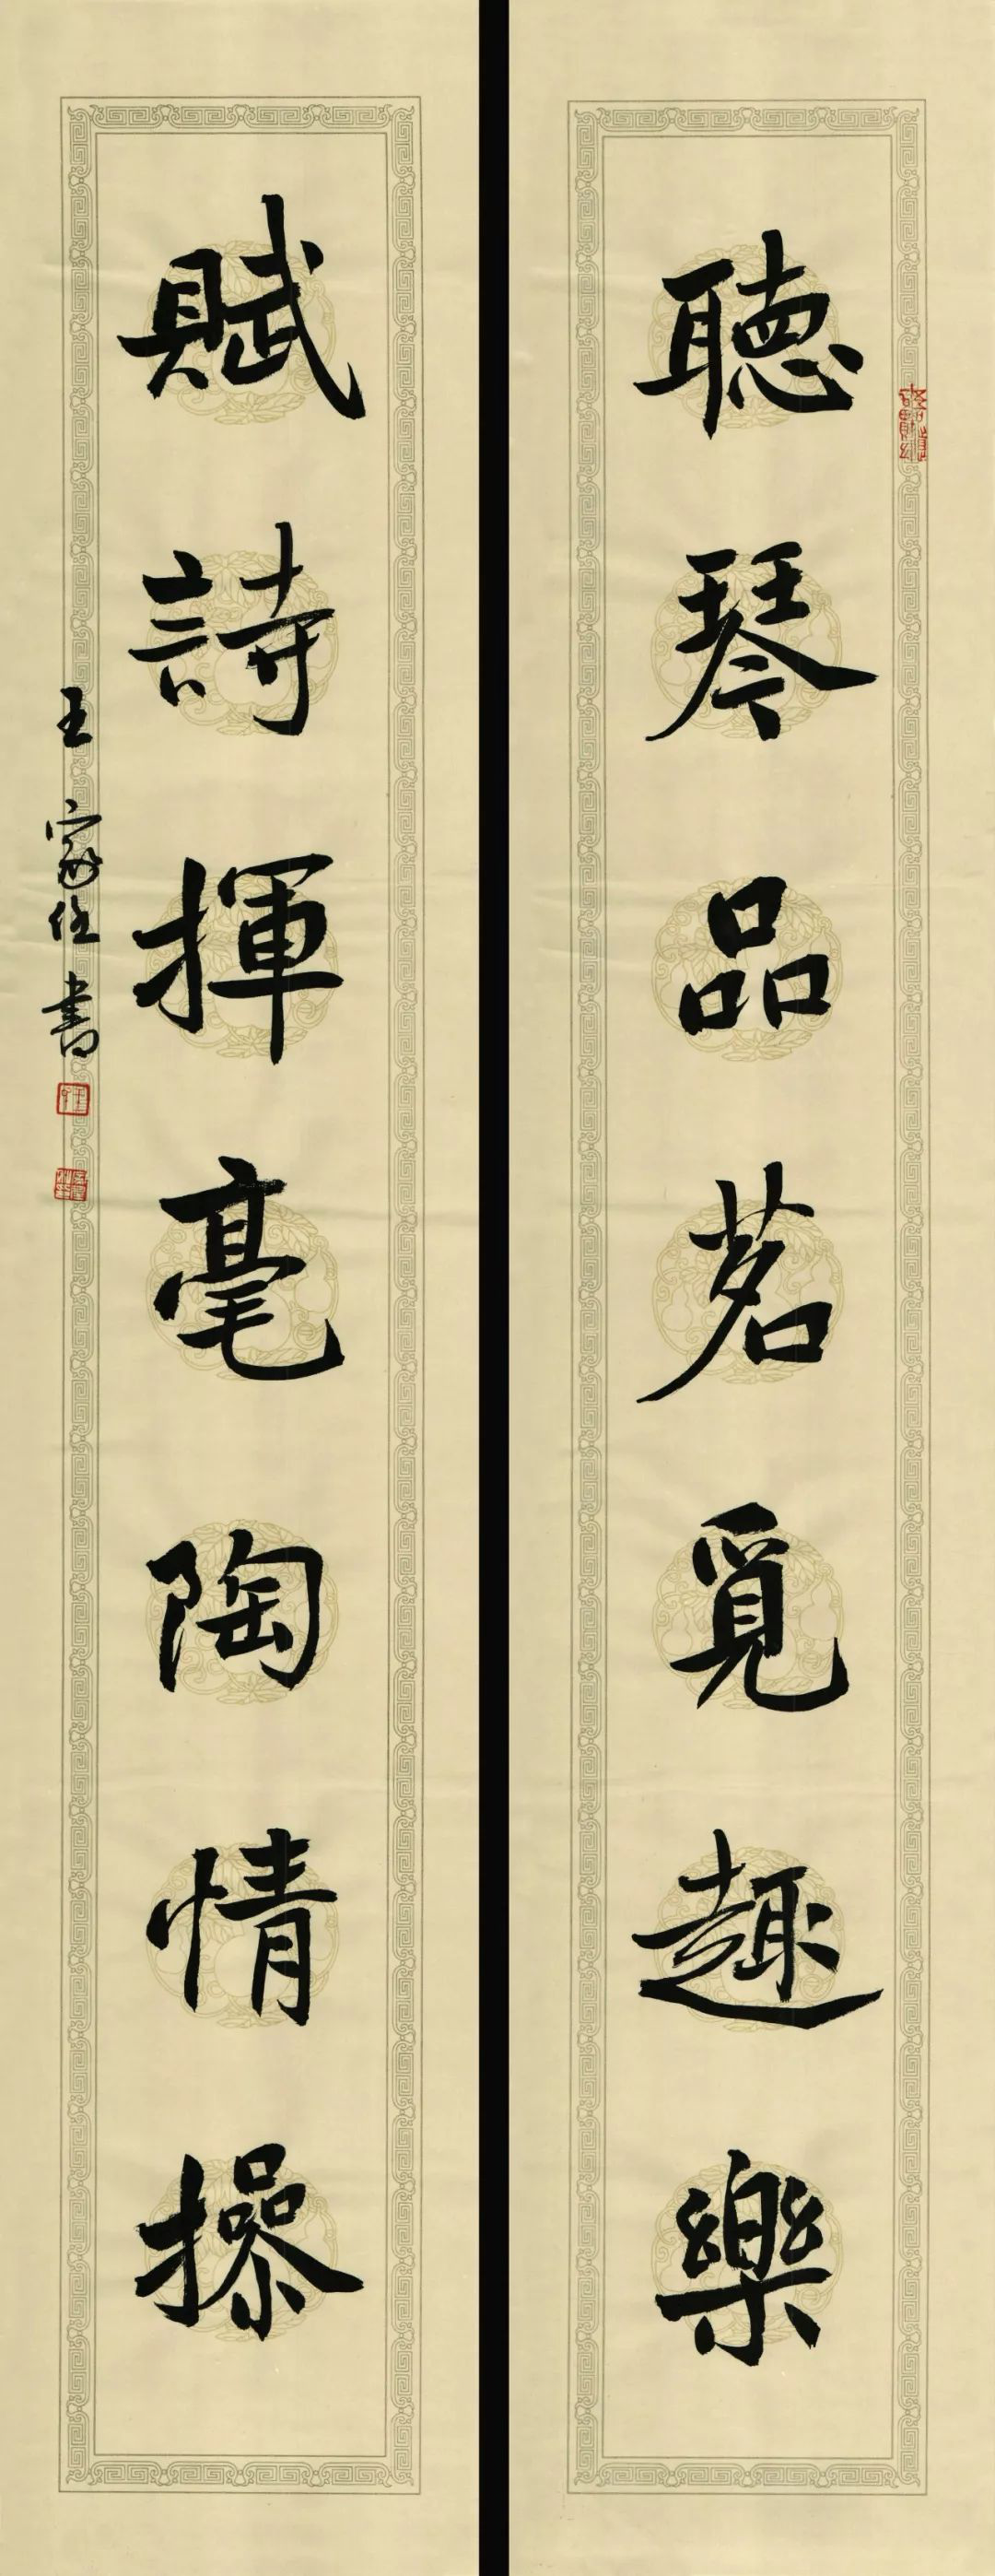 聽琴品茗覓趣樂
賦詩揮毫陶情操
王家佳書